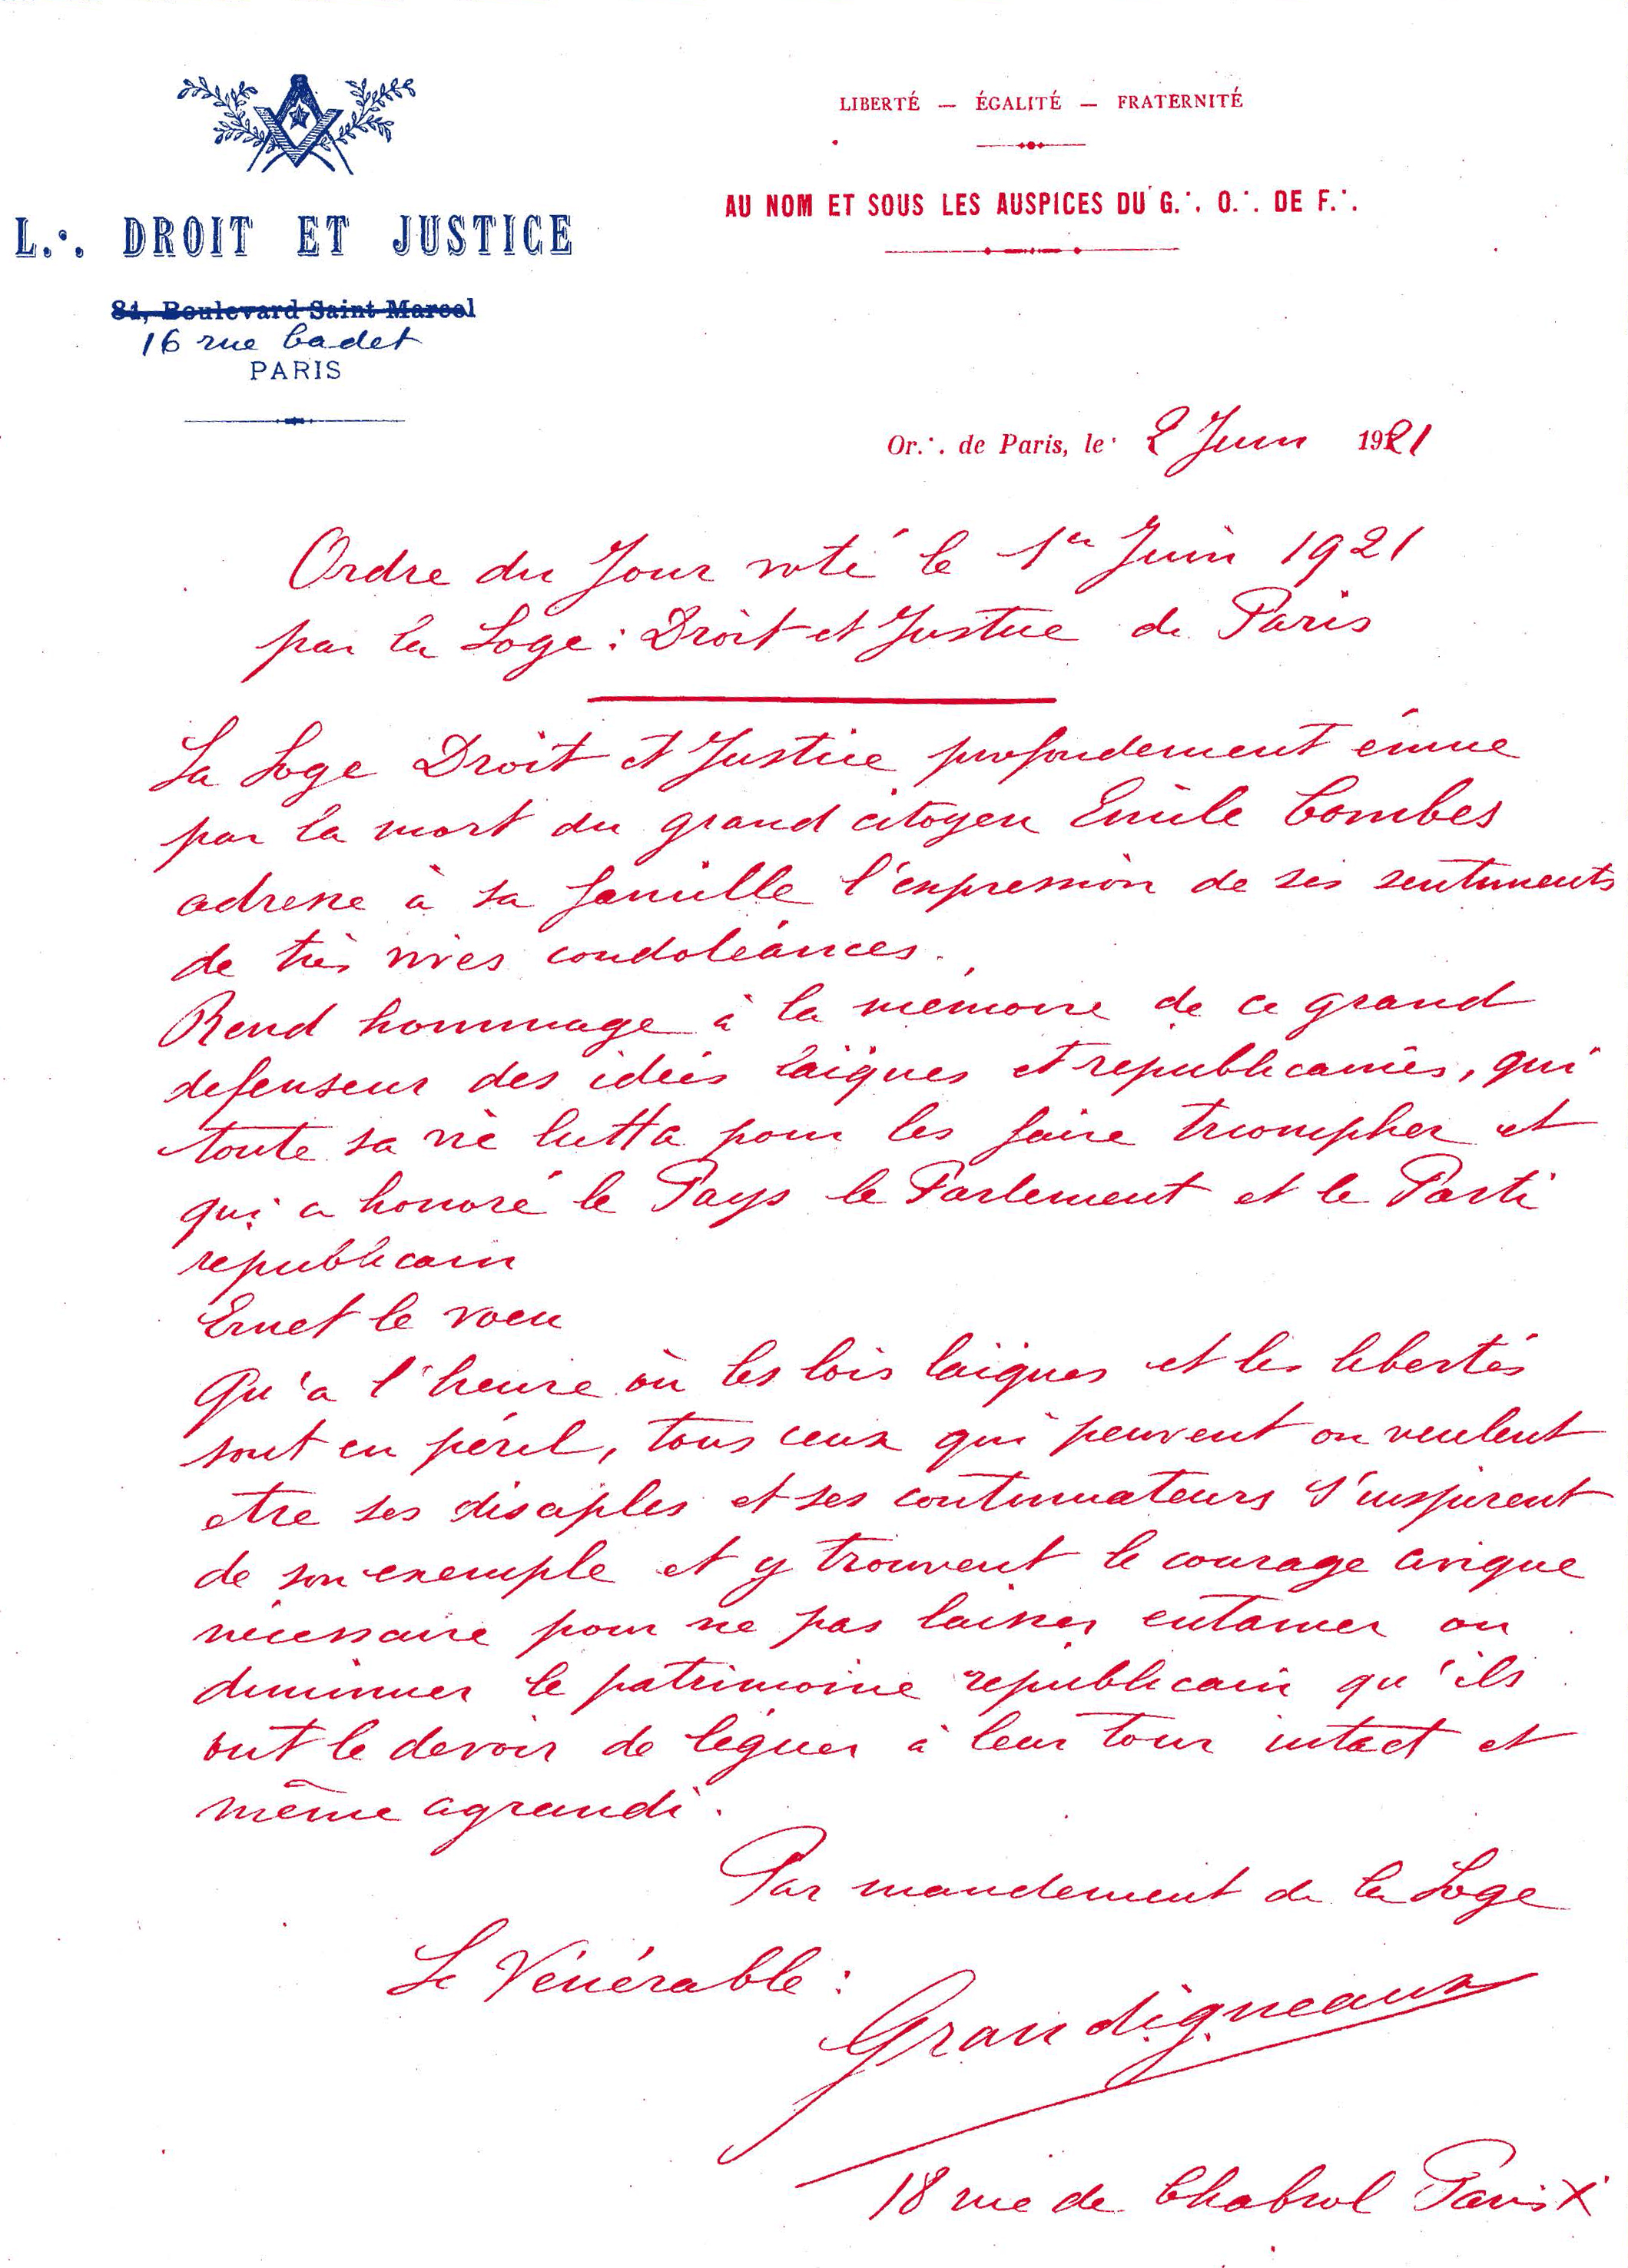 L.·. DROIT ET JUSTICE
81, Boulevard Saint Marcel
16 rue Cadet
PARIS
LIBERTÉ — ÉGALITÉ — FRATERNITÉ
AU NOM ET SOUS LES AUSPICES DU G.·. O.·. DE F.·.
Or.·. de Paris, le 2 Juin 1921
Ordre du Jour voté le 1er Juin 1921
par la Loge : Droit et Justice de Paris
La Loge Droit et Justice profondement émue
par la mort du grand citoyen Emile Combes
adresse à sa famille l'expression de ses sentiments
de très vives condoléances.
Rend hommage à la mémoire de ce grand
defenseur des idées laïques et republicaines, qui
toute sa vie lutta pour les faire triompher et
qui a honoré le Pays le Parlement et le Parti
republicain
Emet le voeu
Qu'a l'heure où les lois laïques et les libertés
sont en péril, tous ceux qui peuvent ou veulent
etre ses disciples et ses continuateurs s'inspirent
de son exemple et y trouvent le courage civique
nécessaire pour ne pas laisser entamer ou
diminuer le patrimoine republicain qu'ils
ont le devoir de léguer à leur tour intact et
même agrandi.
Par mandement de la Loge
Le Vénérable :
Grandigneaux
18 rue de Chabrol Paris X